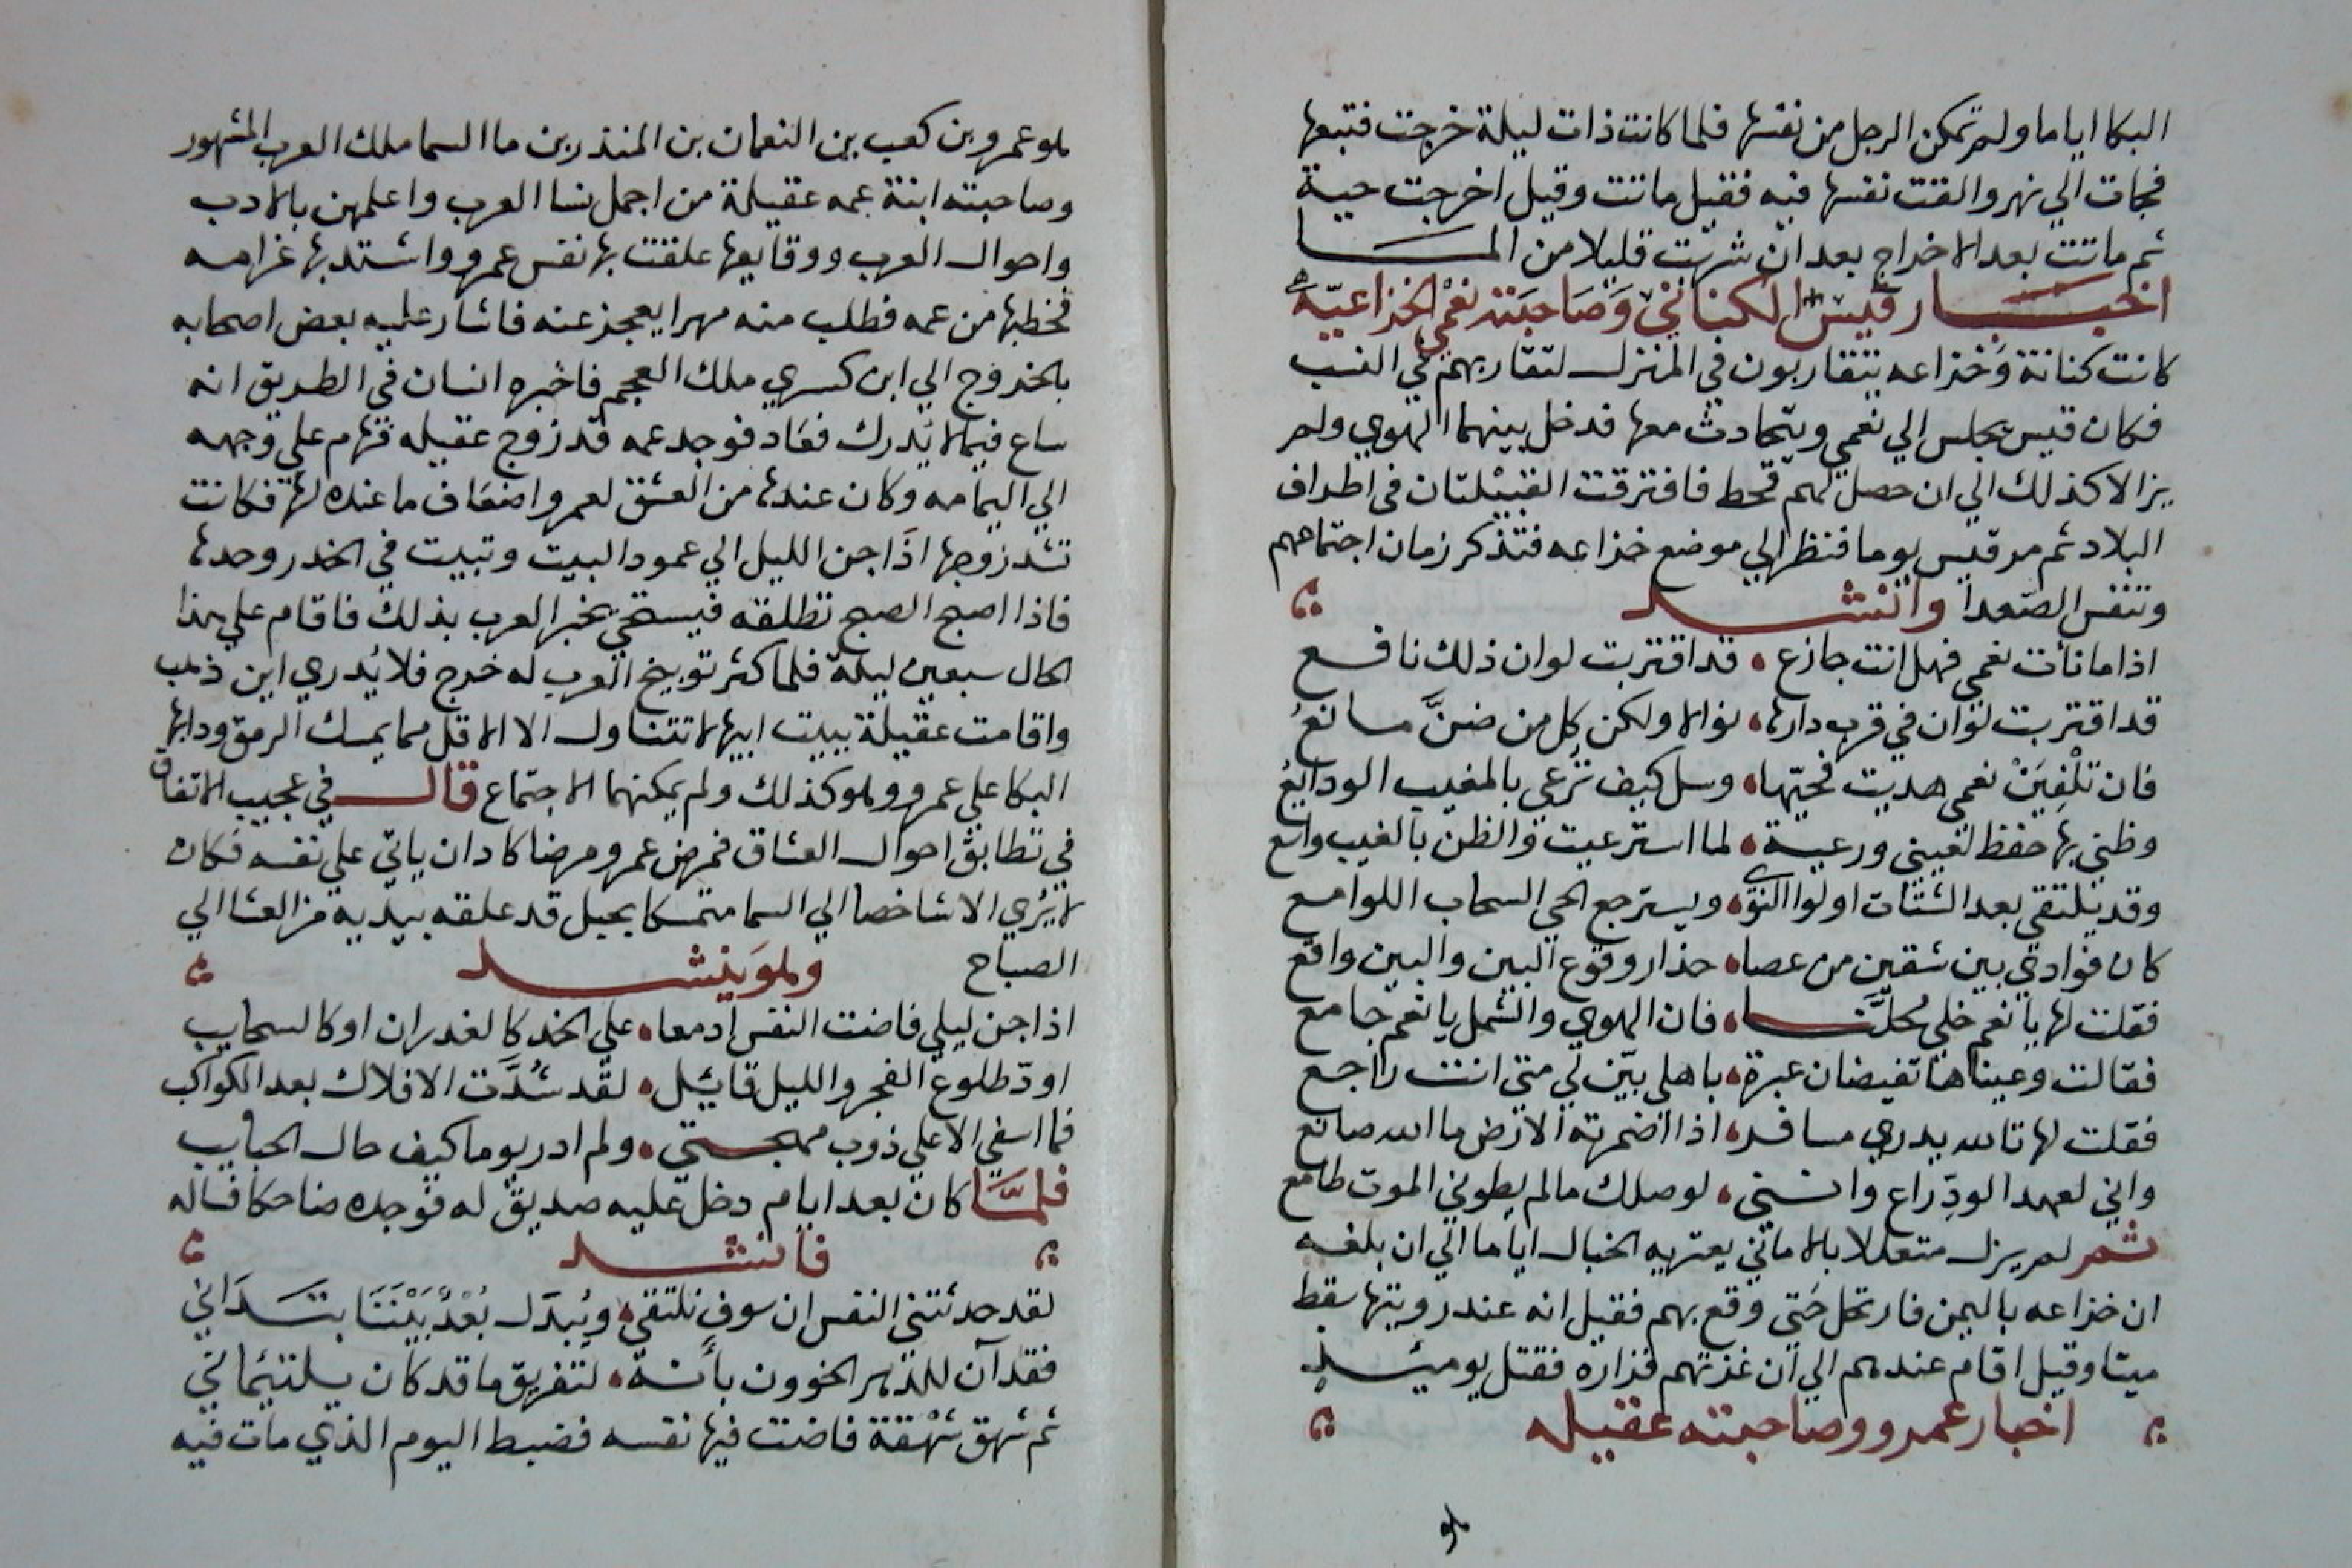 البكا اياما ولم تمكن الرجل من نفسها فلما كانت ذات ليلة خرجت فتبعها
فجات الي نهر والقت نفسها فيه فقيل ماتت وقيل اخرجت حية
ثم ماتت بعد الاخراج بعد ان شربت قليلا من المــا
اخبــار قيس الكناني وصاحبته نعمي الخزاعيّة
كانت كنانة وخزاعه يتقاربون في المنزل لتقاربهم في النسب
فكان قيس يجلس الي نعمي ويتحادث معها فدخل بينهما الهوي ولم
يزالا كذلك الي ان حصل لهم قحط فافترقت القبيلتان في اطراف
البلاد ثم مر قيس يوما فنظر الي موضع خزاعه فتذكر زمان اجتماعهم
وتنفس الصعدا وانشـد
اذا ما نأت نعمي فهل انت جازع • قد اقتربت لو ان ذلك نافـع
قد اقتربت لو ان في قرب دارها • نوالا ولكن كل من ضنَّ مانعُ
فان تلْفِيَنْ نعمي هديت فحيّها • وسل كيف ترعي بالمغيب الودايعُ
وظني بها حفظ لغيبي ورعية • لما استرعيت والظن بالغيب واسع
وقد يلتقي بعد الشتات اولوا النوي • ويسترجع الحي السحاب اللوامع
كان فوادي بين شقين من عصا • حذار وقوع البين والبين واقع
فقلت لها يا نعم خلي محلّنــا • فان الهوي والشمل يا نعم جامع
فقالت وعيناها تفيضان عبرة • باهلي بيّن لي متي انت راجع
فقلت لها تالله يدري مسافر • اذا اضمرته الارض ما الله صانع
واني لعهد الود راع وانني • لوصلك مالم يطوني الموت طامع
ثم لم يزل متعللا بالاماني يعتريه الخبال اياما الي ان بلغه
ان خزاعه باليمن فارتحل حتي وقع بهم فقيل انه عند رويتها سقط
ميتا وقيل اقام عندهم الي ان غزتهم فزاره فقتل يوميئـذ
اخبار عمرو وصاحبته عقيله
هو
هو عمرو بن كعب بن النعمان بن المنذر بن ما السما ملك العرب المشهور
وصاحبته ابنة عمه عقيلة من اجمل نسا العرب واعلمهن بالادب
واحوال العرب ووقايعها علقت بها نفس عمرو واشتد بها غرامه
فخطبها من عمه فطلب منه مهرا يعجز عنه فاشار عليه بعض اصحابه
بالخروج الي ابن كسري ملك العجم فاخبره انسان في الطريق انه
ساع فيما لا يُدرك فعاد فوجد عمه قد زوج عقيله فهام علي وجهه
الي اليمامه وكان عندها من العشق لعمرو اضعاف ما عنده لها فكانت
تشد زوجها اذا جن الليل الي عمود البيت وتبيت في الخدر وحدها
فاذا اصبح الصبح تطلقه فيستحي يخبر العرب بذلك فاقام علي هذا
الحال سبعين ليلة فلما كثر توبيخ العرب له خرج فلا يُدري اين ذهب
واقامت عقيلة ببيت ابيها لا تتناول الا الاقل مما يمسك الرمق ودابها
البكا علي عمرو وهو كذلك ولم يمكنهما الاجتماع قال في عجيب الاتفاق
في تطابق احوال العشاق فمرض عمرو مرضا كاد ان ياتي علي نفسه فكان
لا يُري الا شاخصا الي السما متمسكا بحبل قد علقه بيديه من العشا الي
الصباح وهو ينشـد
اذا جن ليلي فاضت النفس ادمعا • علي الخد كالغدران او كالسحايب
اودّ طلوع الفجر والليل قايل • لقد شُدَّت الافلاك بعد الكواكب
فما اسفي الا علي ذوب مهجتي • ولم ادر يوما كيف حال الحبايب
فلمَّا كان بعد ايام دخل عليه صديق له فوجده ضاحكا فساله
فانشـد
لقد حدثتني النفس ان سوف نلتقي • ويُبدَل بُعْدٌ بَيْنَنَا بتـدَاني
فقد آن للدهر الخوون بأنه • لتفريق ما قد كان يلتئماني
ثم شهق شهْقة فاضت فيها نفسه فضبط اليوم الذي مات فيه